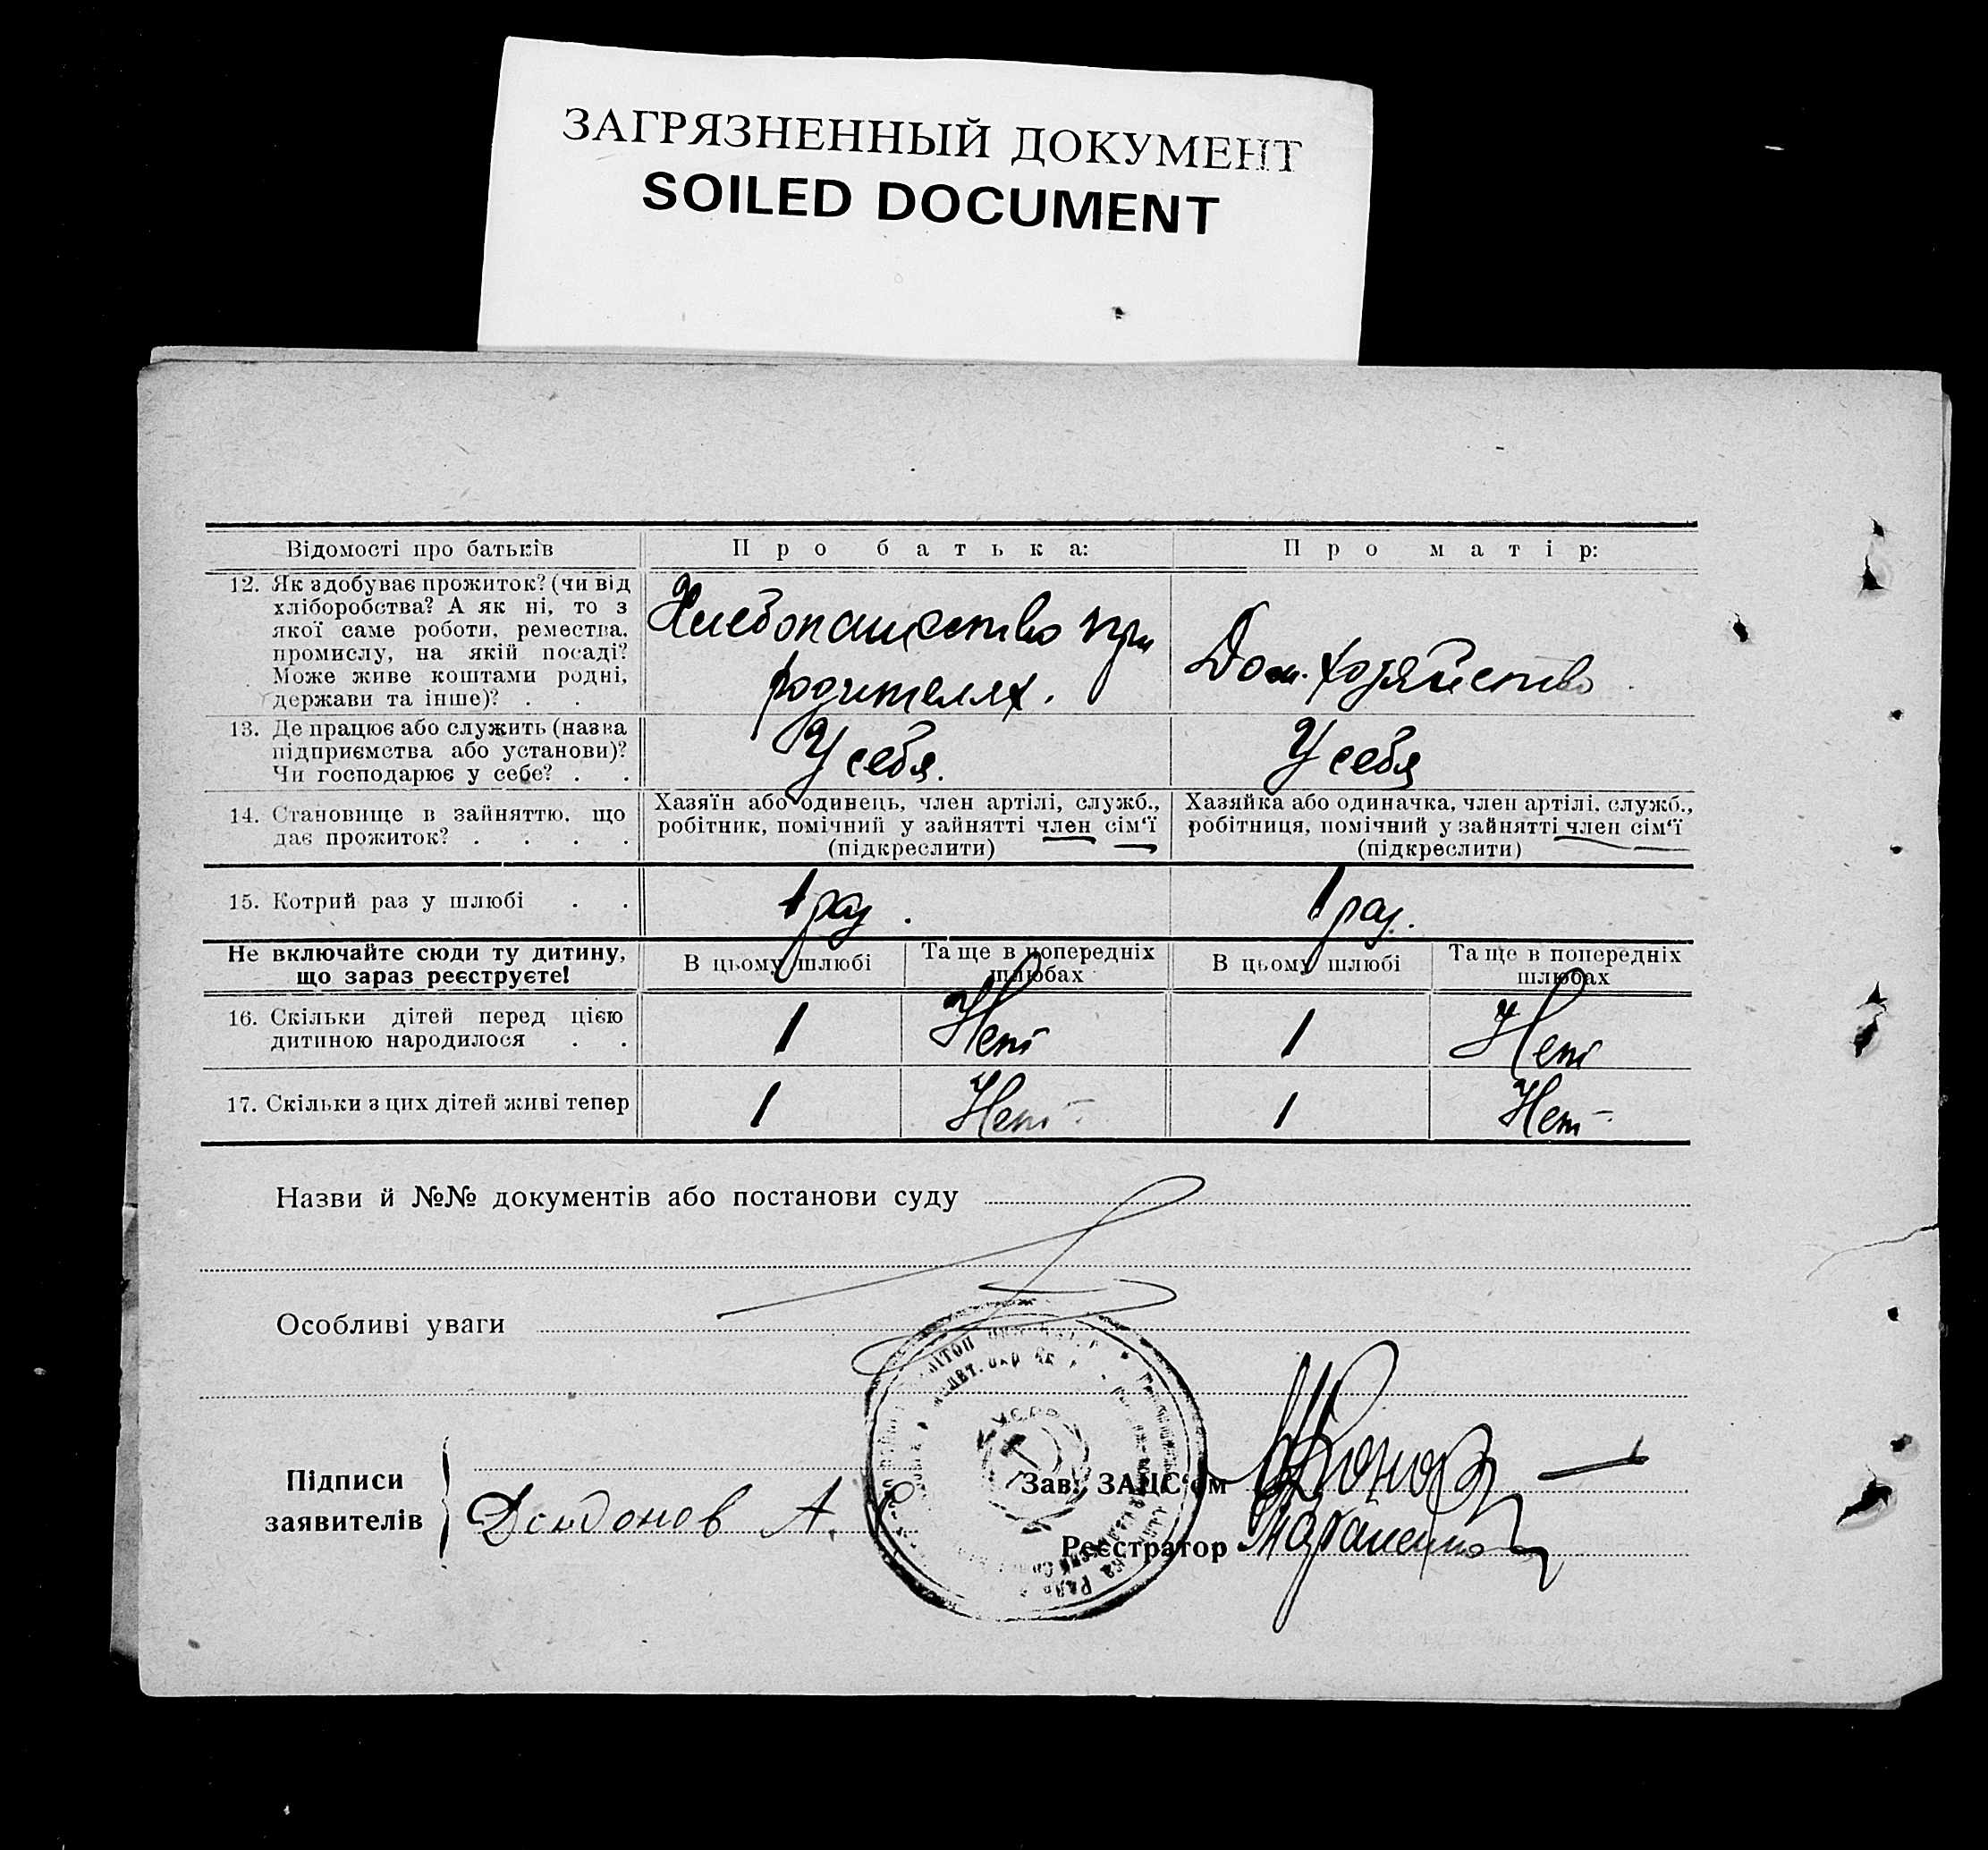 ЗАГРЯЗНЕННЫЙ ДОКУМЕНТ
SOILED DOCUMENT
Відомості про батьків
Про батька:
Про матір:
12. Як здобуває прожиток? (чи від
хліборобства? А як ні, то з
якої саме роботи, ремества,
промислу, на якій посаді?
Може живе коштами родні,
держави та інше)? . .
Хлебопашество при
родителях.
Дом. хозяйство
13. Де працює або служить (назва
підприємства або установи)?
Чи господарює у себе? . .
У себя.
У себя
14. Становище в зайняттю, що
дає прожиток? . . . .
Хазяїн або одинець, член артілі, служб.,
робітник, помічний у зайнятті член сім'ї
(підкреслити)
Хазяйка або одиначка, член артілі, служб.,
робітниця, помічний у зайнятті член сім'ї
(підкреслити)
15. Котрий раз у шлюбі . .
1 раз.
1 раз.
Не включайте сюди ту дитину,
що зараз реєструєте!
В цьому шлюбі
Та ще в попередніх
шлюбах
В цьому шлюбі
Та ще в попередніх
шлюбах
16. Скільки дітей перед цією
дитиною народилося . .
1
Нет
1
Нет
17. Скільки з цих дітей живі тепер
1
Нет
1
Нет
Назви й №№ документів або постанови суду
Особливі уваги
УСРР
Підписи
заявителів
А.
Зав. ЗАЦС'ом
Реєстратор